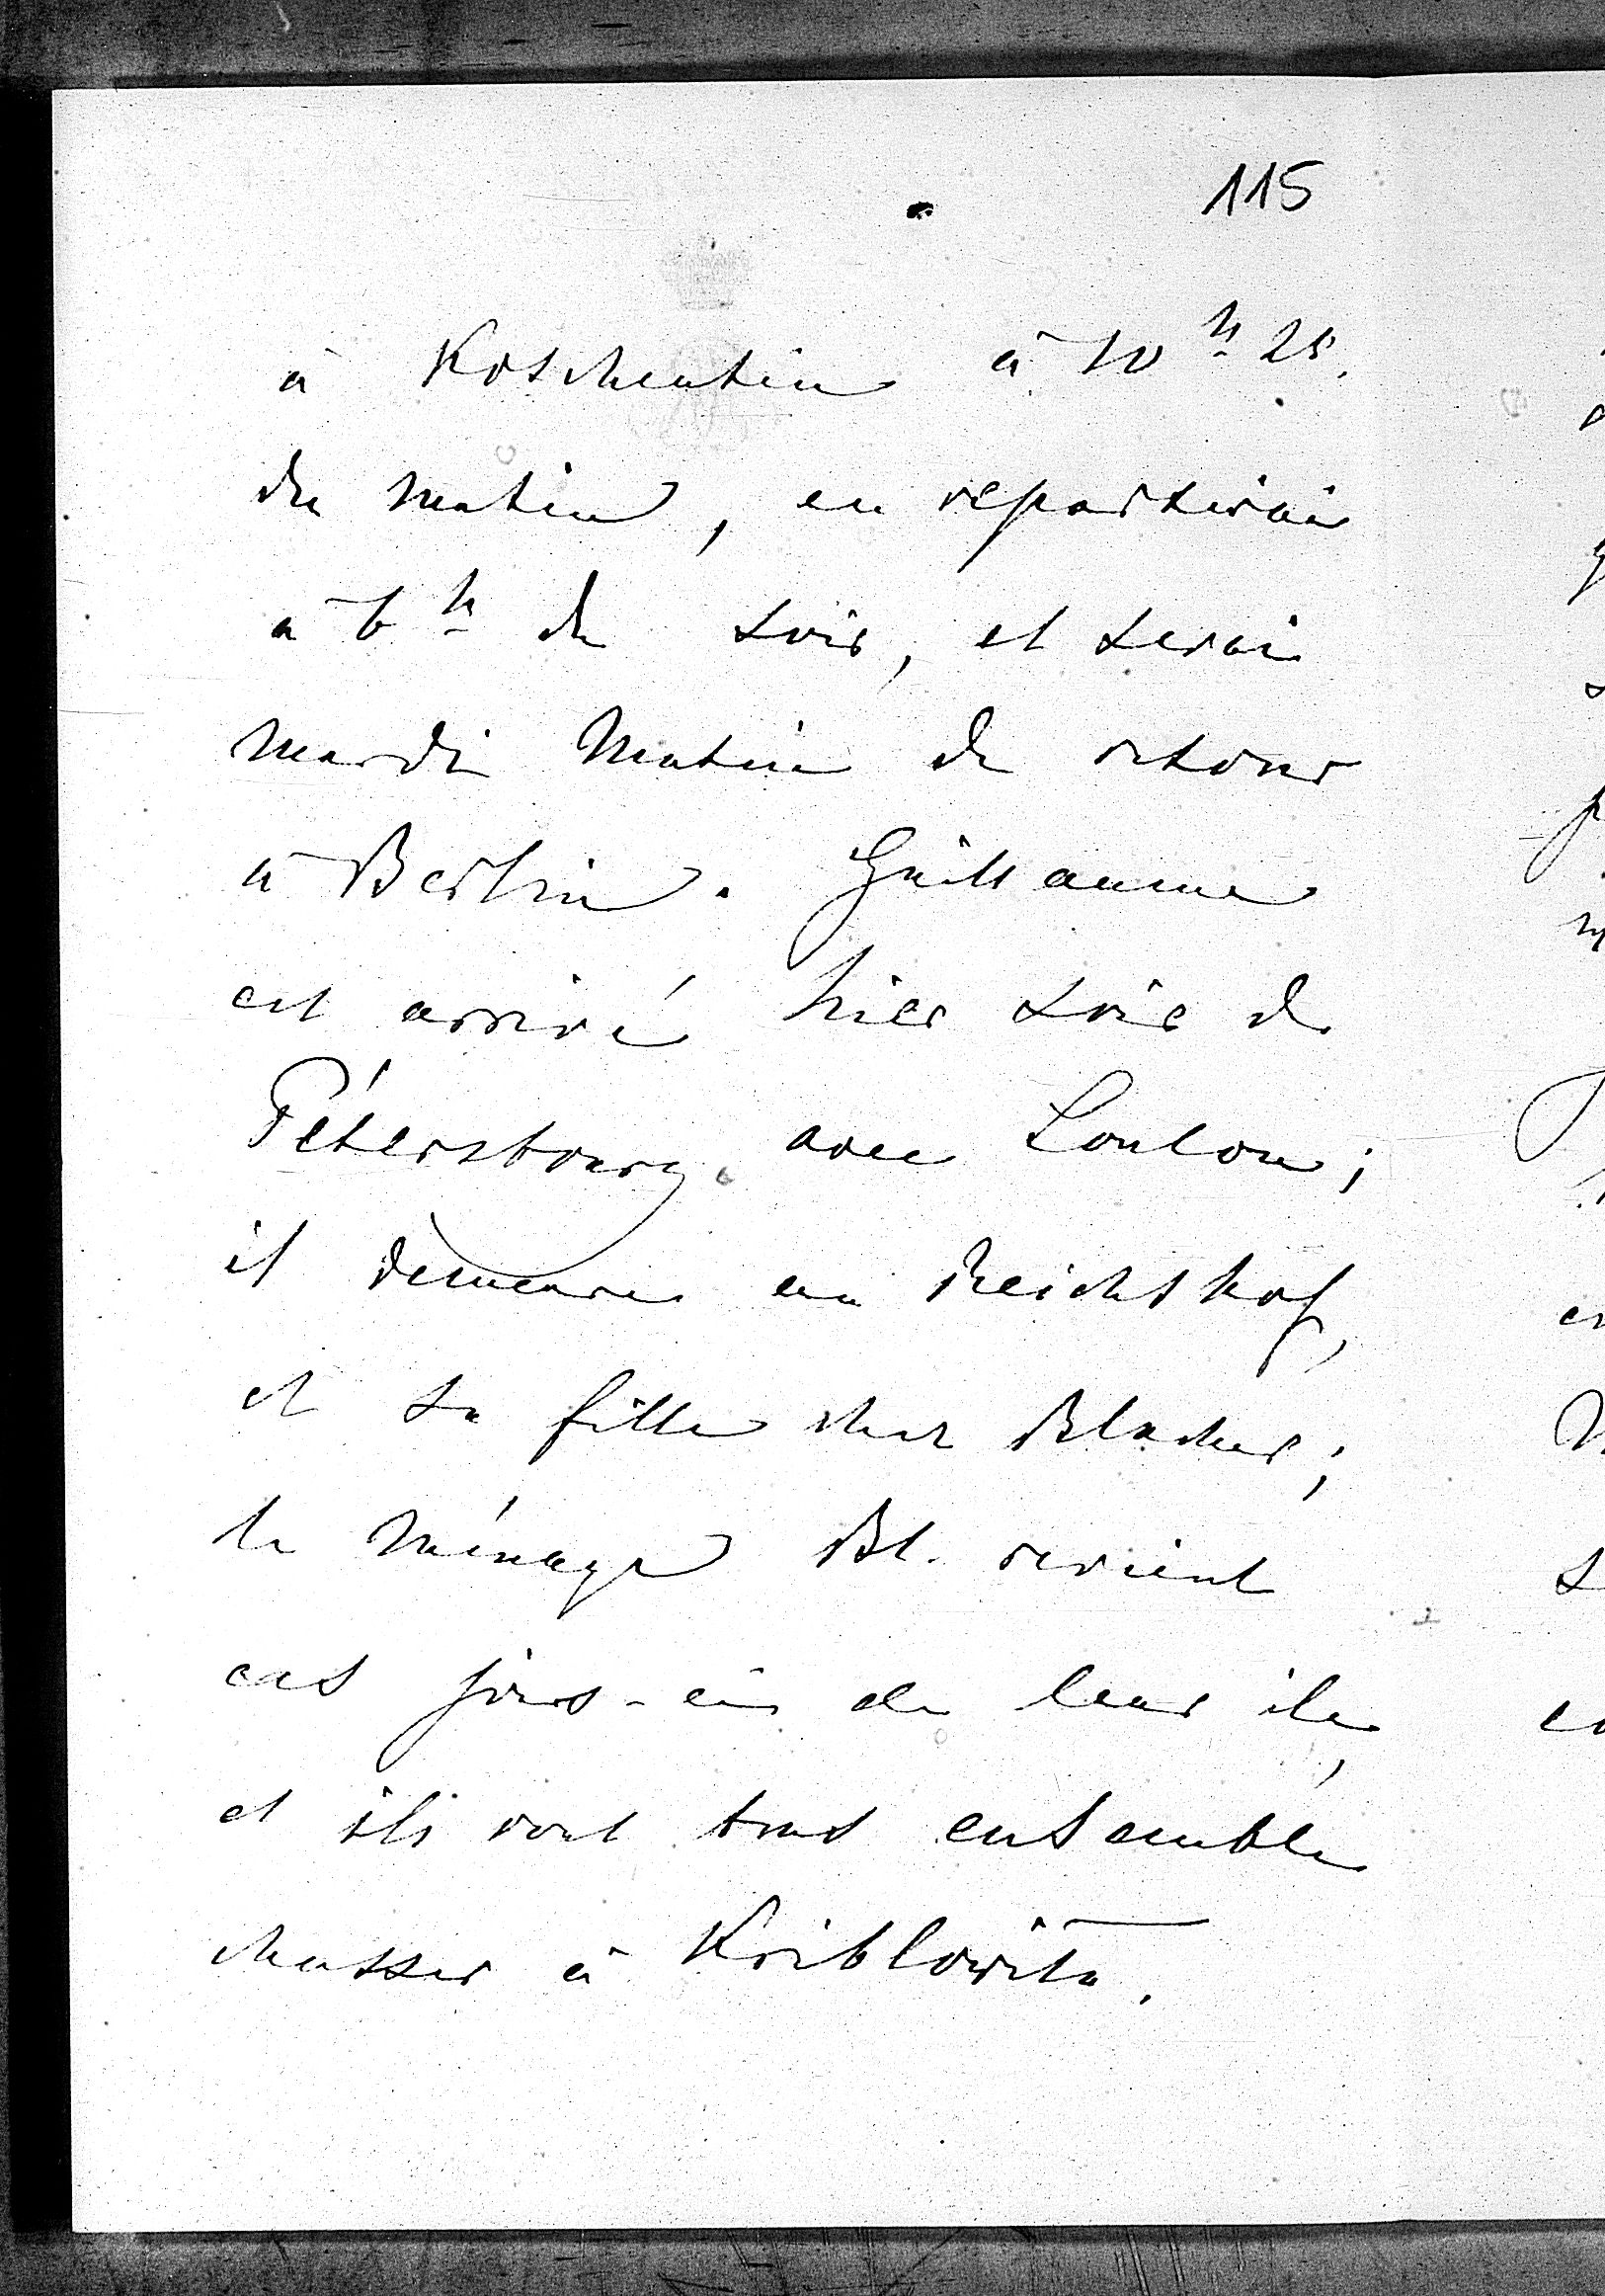 115
à Koschentin à 10 h 25.
du matin, en repartirai
à 6 h du soir, et serai
mardi matin de retour
à Berlin. Guillaume
est arrivé hier soir de
Pétersbourg avec Loulou;
il demeure au Reichshof,
et sa fille chez Blücher;
le ménage Bl. revient
ces jours-ci de leur île,
et ils vont tous ensemble
chasser à Krieblowitz.